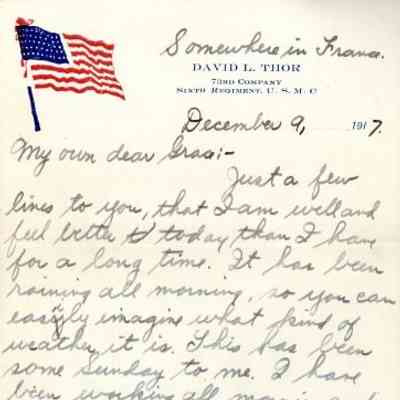 Somewhere in France.
DAVID L. THOR
73RD COMPANY
SIXTH REGIMENT, U. S. M. C
December 9, 1917.
My own dear Grace:-
Just a few
lines to you, that I am well and
feel better today than I have
for a long time. It has been
raining all morning, so you can
easily imagine what kind of
weather it is. This has been
some Sunday to me. I have
been working all morning and